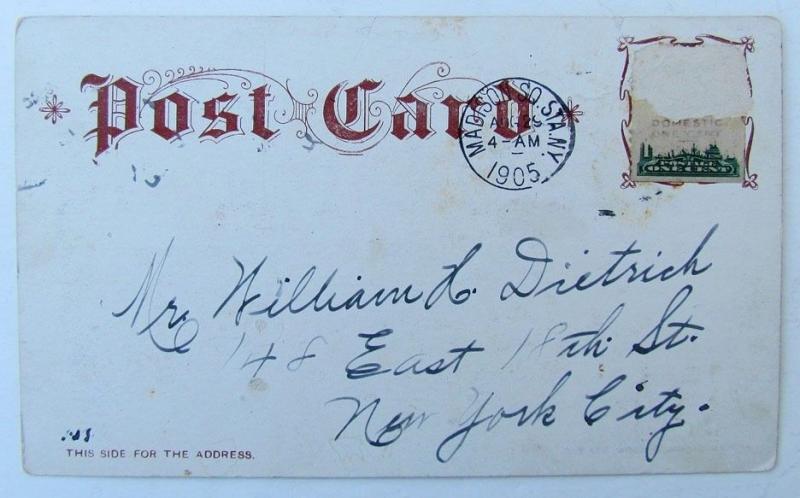 Post Card
MADISON SQ. STA. N.Y.
4-AM
1905
DOMESTIC
ONE CENT
Mr. William H. Dietrich
148 East 18th. St.
New York City.
THIS SIDE FOR THE ADDRESS.